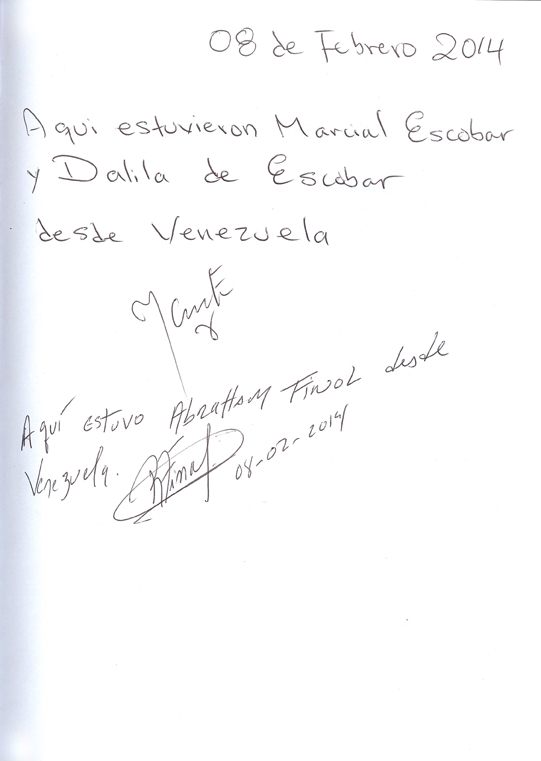 08 de Febrero 2014
Aqui estuvieron Marcial Escobar
y Dalila de Escobar
desde Venezuela
Aquí estuvo Abraham Finol desde
Venezuela.
08-02-2014